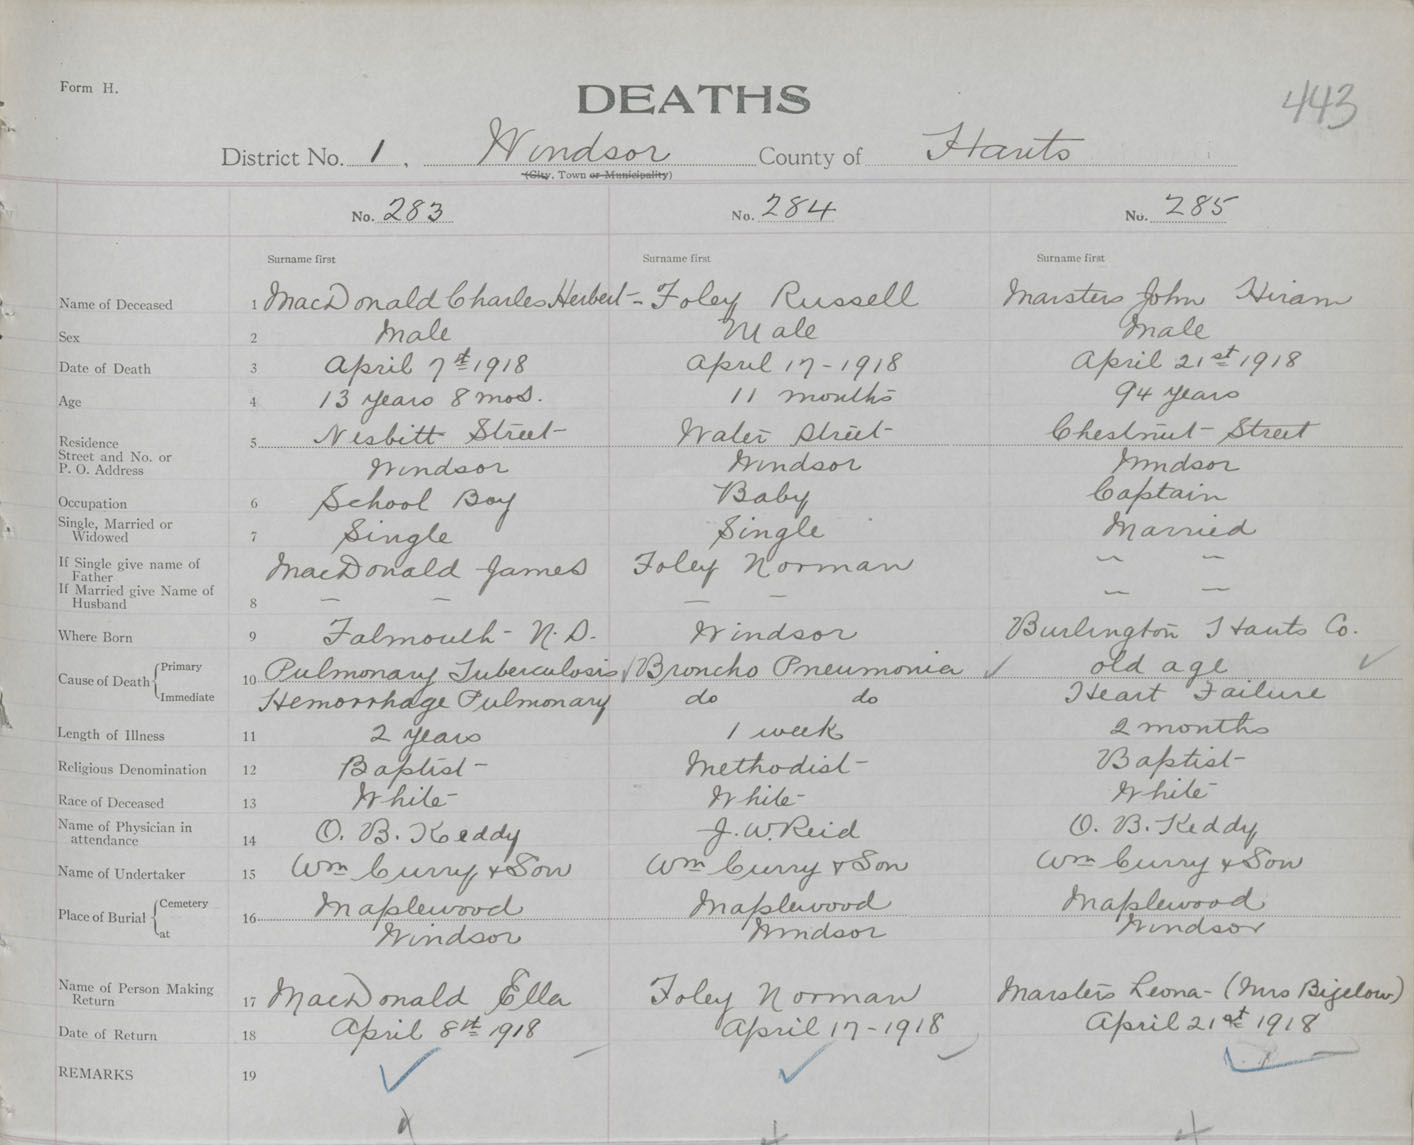 Form H.
DEATHS
443
District No. 1, Windsor County of Hants
(City, Town or Municipality)
No. 283 No. 284 No. 285
Surname first Surname first Surname first
Name of Deceased 1 MacDonald Charles Herbert - Foley Russell Marsters John Hiram
Sex 2 Male Male Male
Date of Death 3 April 7th 1918 April 17-1918 April 21st 1918
Age 4 13 years 8 mos. 11 months 94 years
Residence Street and No. or P. O. Address 5 Nesbitt Street Water Street Chestnut Street
Windsor Windsor Windsor
Occupation 6 School Boy Baby Captain
Single, Married or Widowed 7 Single Single Married
If Single give name of Father MacDonald James Foley Norman — —
If Married give Name of Husband 8 — — — — — —
Where Born 9 Falmouth N.S. Windsor Burlington Hants Co.
Cause of Death Primary 10 Pulmonary Tuberculosis ✓ Broncho Pneumonia ✓ old age ✓
Immediate Hemorrhage Pulmonary do do Heart Failure
Length of Illness 11 2 years 1 week 2 months
Religious Denomination 12 Baptist Methodist Baptist
Race of Deceased 13 White White White
Name of Physician in attendance 14 O. B. Keddy J. W. Reid O. B. Keddy
Name of Undertaker 15 Wm Curry & Son Wm Curry & Son Wm Curry & Son
Place of Burial Cemetery 16 Maplewood Maplewood Maplewood
at Windsor Windsor Windsor
Name of Person Making Return 17 MacDonald Ella Foley Norman Marsters Leona - (Mrs Bigelow)
Date of Return 18 April 8th 1918 April 17-1918 April 21st 1918
REMARKS 19 ✓ ✓ ✓